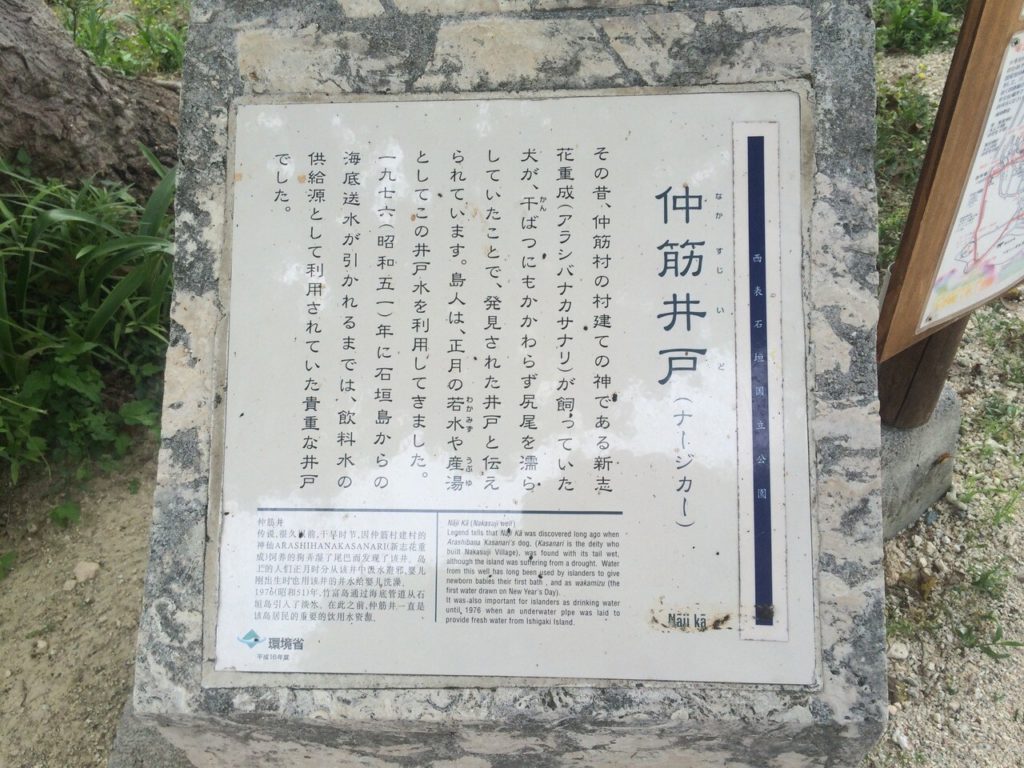 西表石垣国立公園
仲筋井戸(ナージカー)
なかすじいど
その昔、仲筋村の村建ての神である新志
花重成(アラシバナカサナリ)が飼っていた
犬が、干ばつにもかかわらず尻尾を濡ら
かん
していたことで、発見された井戸と伝え
られています。島人は、正月の若水や産湯
わかみず
うぶゆ
としてこの井戸水を利用してきました。
一九七六(昭和五一)年に石垣島からの
海底送水が引かれるまでは、飲料水の
供給源として利用されていた貴重な井戸
でした。
仲筋井
传说,很久以前,干旱时节,因仲筋村建村的
神仙ARASHIHANAKASANARI(新志花重
成)饲养的狗弄湿了尾巴而发现了该井。岛
上的人们正月时分从该井中汲水避邪,婴儿
刚出生时也用该井的井水给婴儿洗澡。
1976(昭和51)年,竹富岛通过海底管道从石
垣岛引入了淡水。在此之前,仲筋井一直是
该岛居民的重要的饮用水资源。
Nāji Kā (Nakasuji well)
Legend tells that Nāji Kā was discovered long ago when
Arashibana Kasanari's dog, (Kasanari is the deity who
built Nakasuji Village), was found with its tail wet,
although the island was suffering from a drought. Water
from this well has long been used by islanders to give
newborn babies their first bath, and as wakamizu (the
first water drawn on New Year's Day).
It was also important for islanders as drinking water
until 1976 when an underwater pipe was laid to
provide fresh water from Ishigaki Island.
Nāji kā
環境省
平成16年度